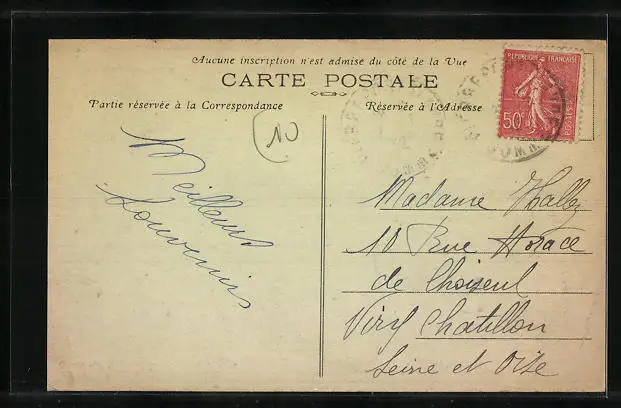 Aucune inscription n'est admise du côté de la Vue
CARTE POSTALE
Partie réservée à la Correspondance
Réservée à l'Adresse
REPUBLIQUE FRANÇAISE
50c
POSTES
10
Meilleurs
Souvenirs
Madame Hallez
10 Rue Horace
de Choiseul
Viry Chatillon
Seine et Oise